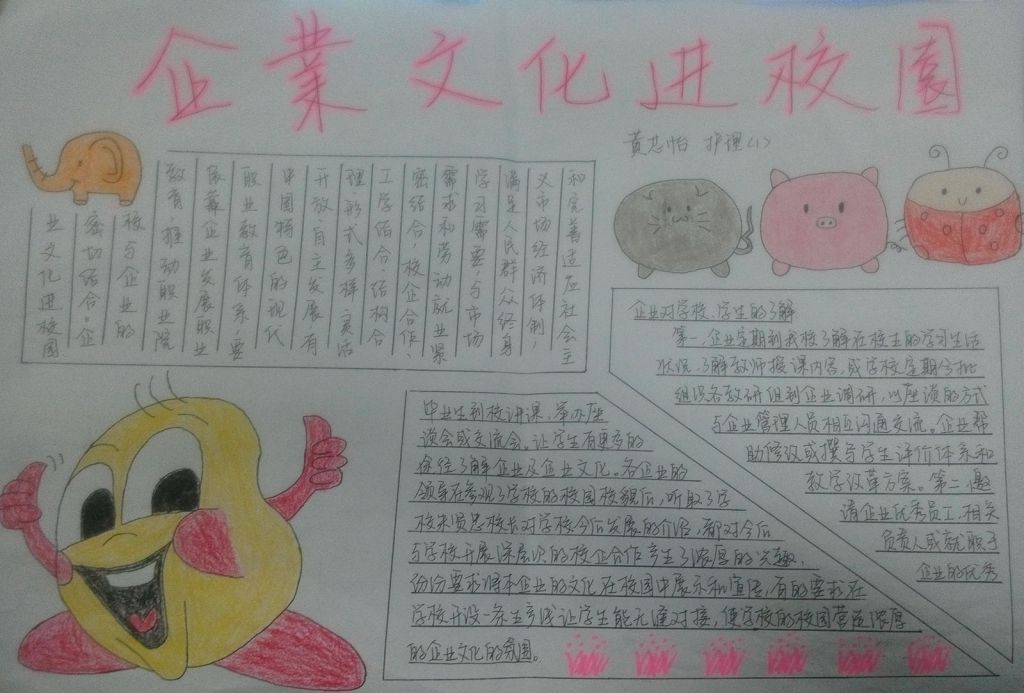 企業文化进校園
黄芯怡 护理(1)
和完善适应社会主
义市场经济体制，
满足人民群众终身
学习需要，与市场
需求和劳动就业紧
密结合，校企合作、
工学结合，结构合
理，形式多样，灵活
开放，自主发展，有
中国特色的现代
职业教育体系，要
依靠企业发展职业
教育，推动职业院
校与企业的
密切结合。企
业文化进校园
企业对学校、学生的了解
第一，企业定期到我校了解在校生的学习生活
状况，了解教师授课内容，或学校定期分批
组织各教研组到企业调研，以座谈的方式
与企业管理人员相互沟通交流。企业帮
助修改或撰写学生评价体系和
教学改革方案。第二，邀
请企业优秀员工、相关
负责人或就职于
企业的优秀
毕业生到校讲课、举办座
谈会或交流会。让学生有更多的
途径了解企业及企业文化。各企业的
领导在参观了学校的校园校貌后，听取了学
校来贤忠校长对学校今后发展的介绍，都对今后
与学校开展深层次的校企合作产生了浓厚的兴趣，
纷纷要求将本企业的文化在校园中展示和宣传，有的要求在
学校开设一条生产线让学生能无缝对接，使学校的校园营造浓厚
的企业文化的氛围。